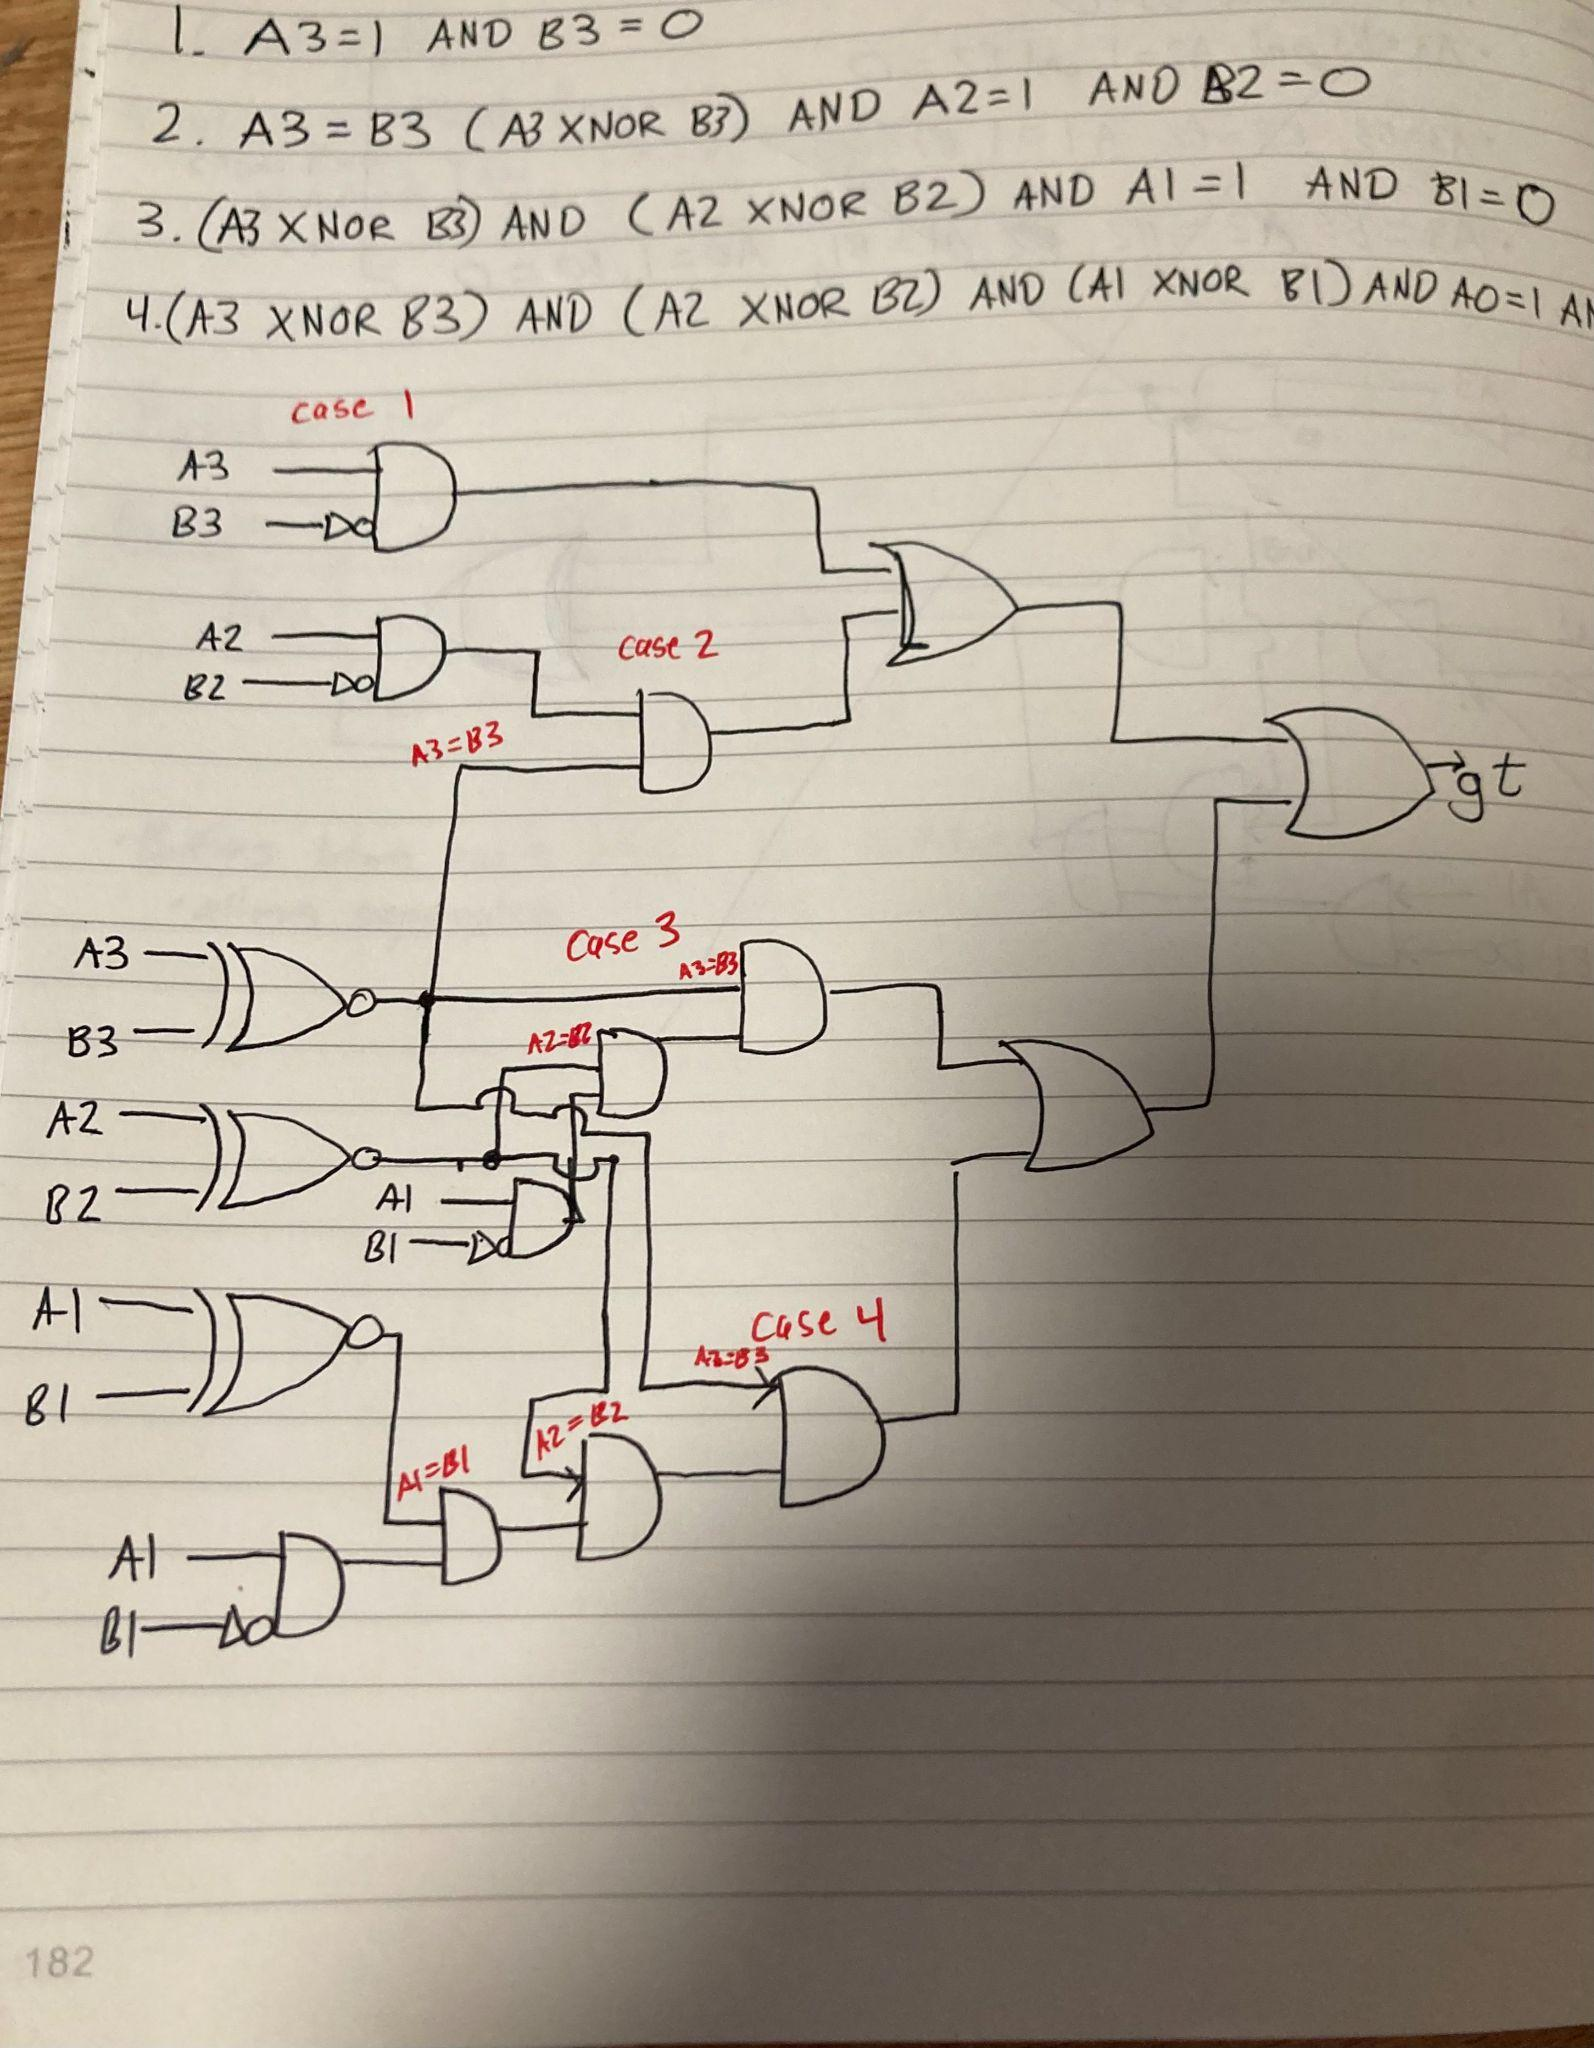 1. A3=1 AND B3=0
2. A3=B3 (A3 XNOR B3) AND A2=1 AND B2=0
3. (A3 XNOR B3) AND (A2 XNOR B2) AND A1=1 AND B1=0
4. (A3 XNOR B3) AND (A2 XNOR B2) AND (A1 XNOR B1) AND A0=1 AN
case 1
A3
B3
A2
case 2
B2
A3=B3
gt
case 3
A3
A3=B3
B3
A2=B2
A2
A1
B2
B1
A1
case 4
A3=B3
B1
A2=B2
A1=B1
A1
B1
182